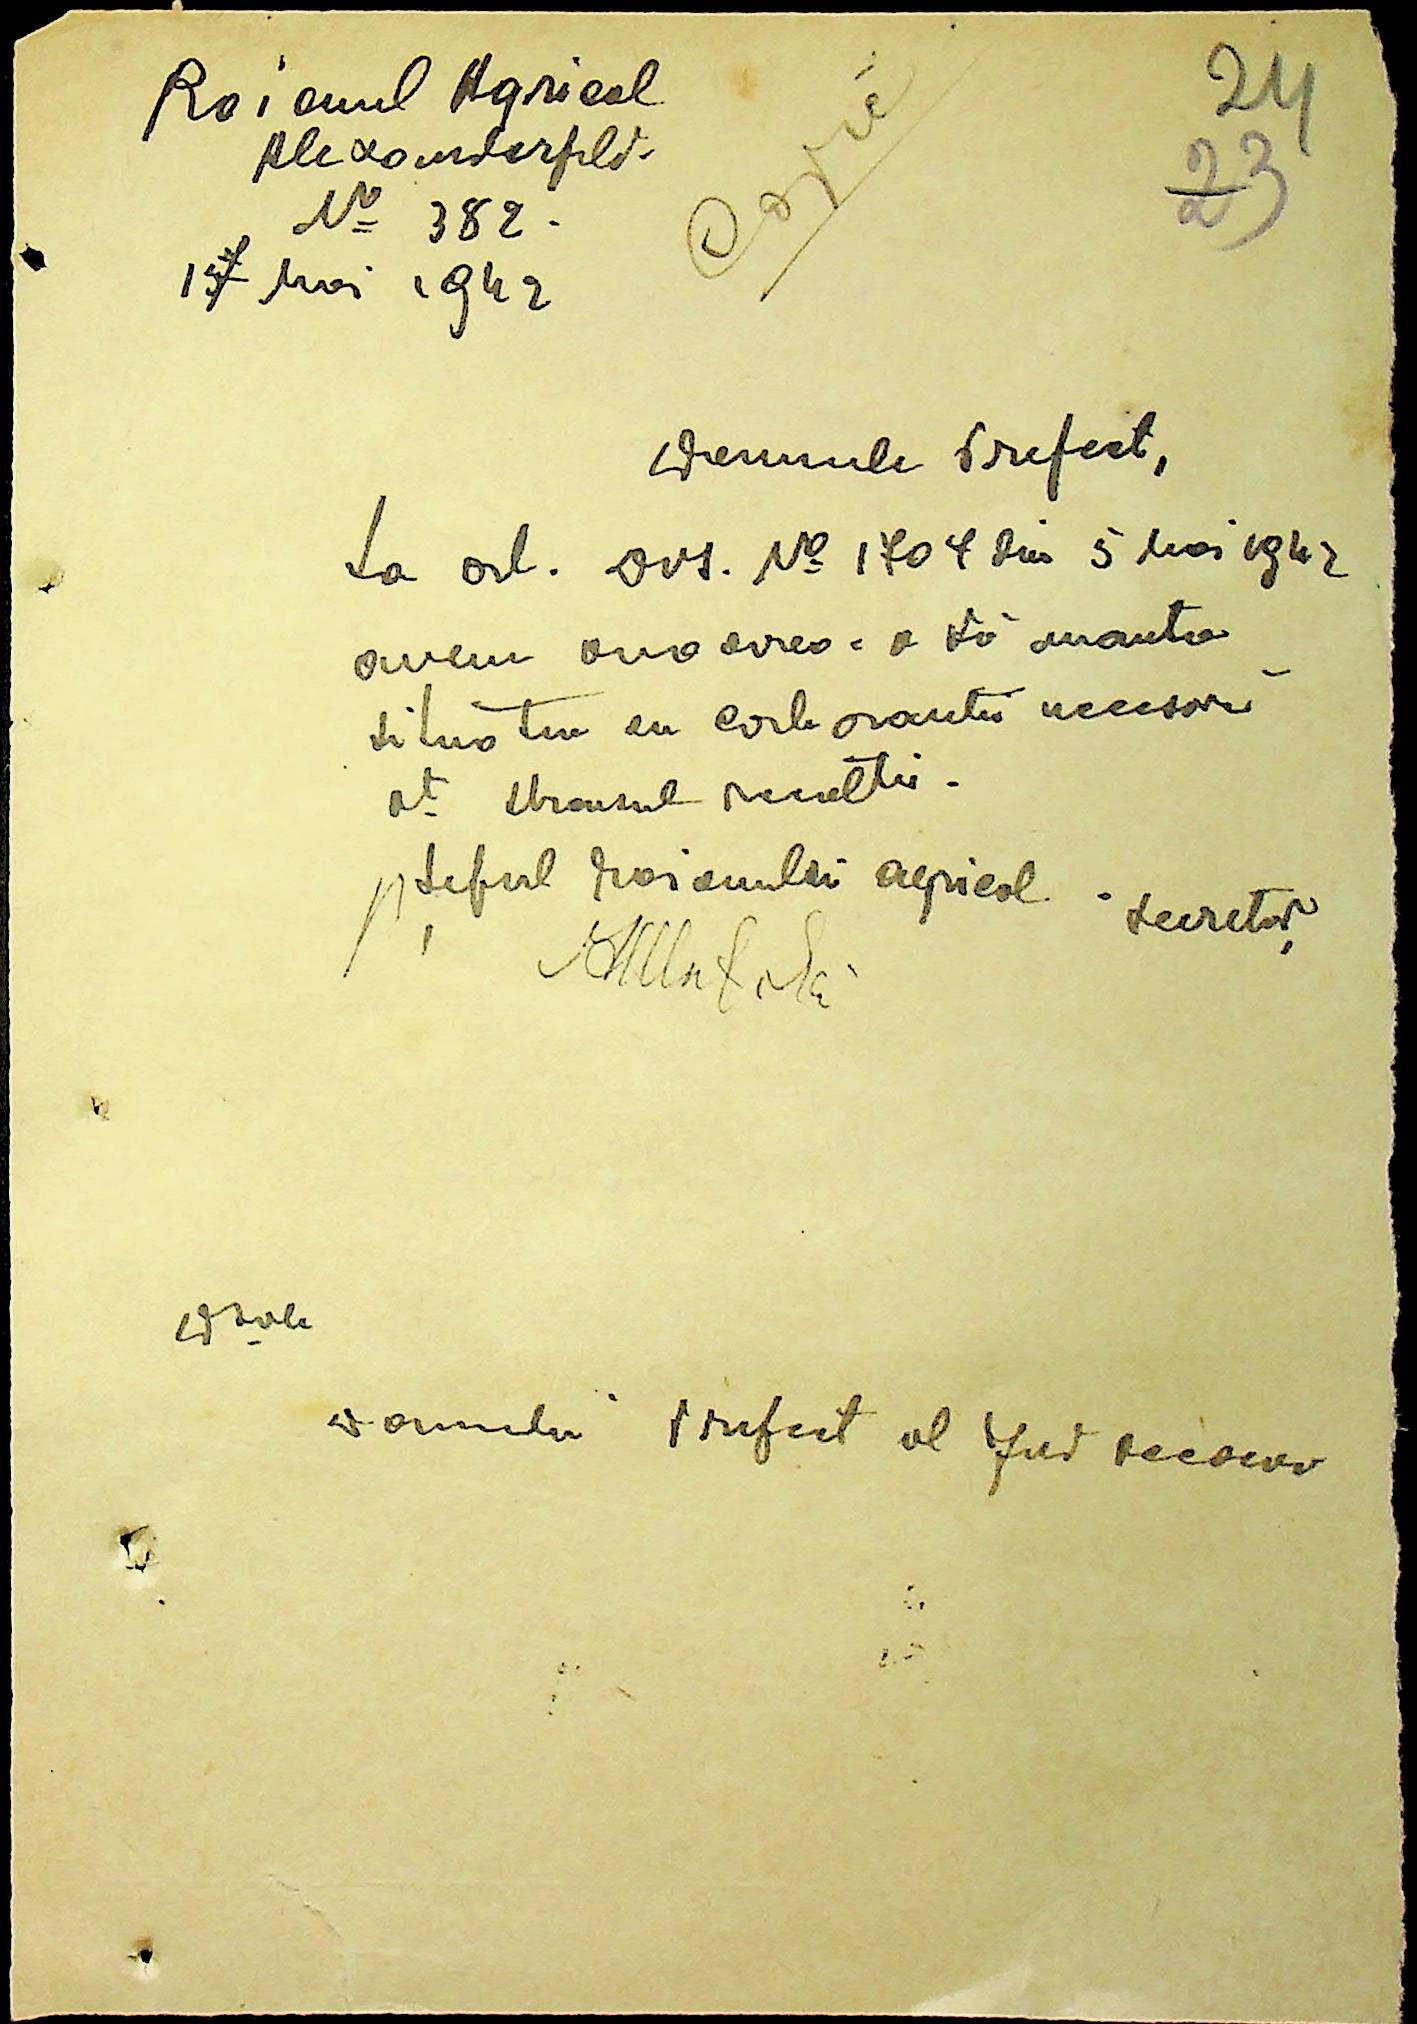 Raionul Agricol
Alexanderfeld.
No 382.
Mai 1942
Copie
24
23
Domnule Prefect,
La ord. Dvs. No 1707 din 5 Mai 1942
avem onoarea a vă înainta
situația cu carburanții necesari
pt. strânsul recoltii.
p. Șeful Raionului agricol
Secretar,
Dsale
Domnului Prefect al Jud